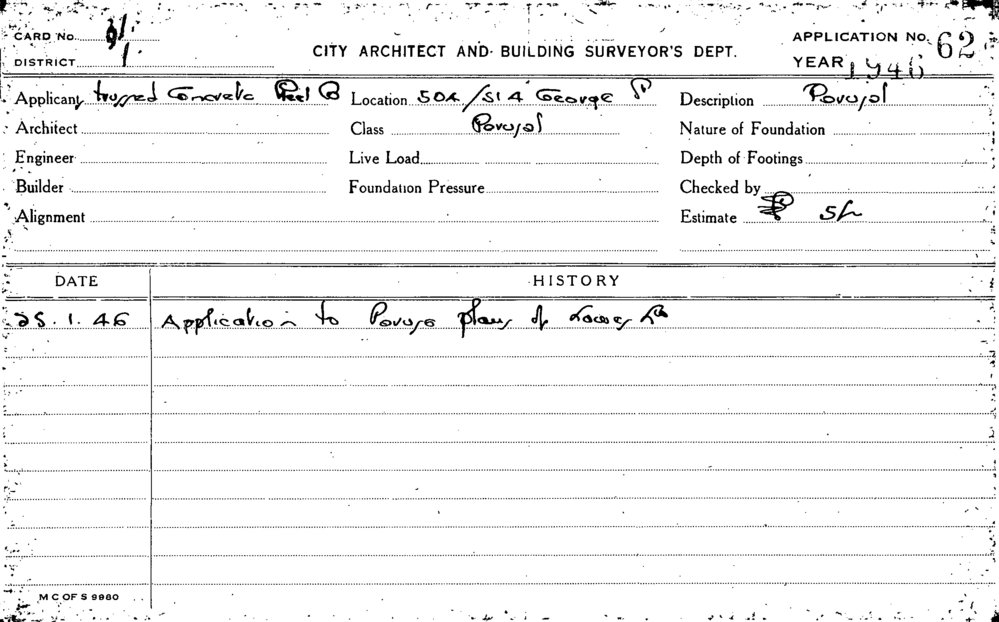 CARD No.
CITY ARCHITECT AND BUILDING SURVEYOR'S DEPT.
APPLICATION No. 62
DISTRICT 1.
YEAR 1946
Applicant Trussed Concrete Steel Co Location 504/514 George St Description Perusal
Architect Class Perusal Nature of Foundation
Engineer Live Load Depth of Footings
Builder Foundation Pressure Checked by
Alignment Estimate 5/-
DATE HISTORY
25.1.46 Application to Peruse plans of
M C OF S 9860